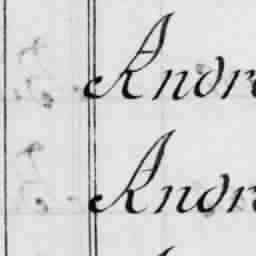 Andre
Andre